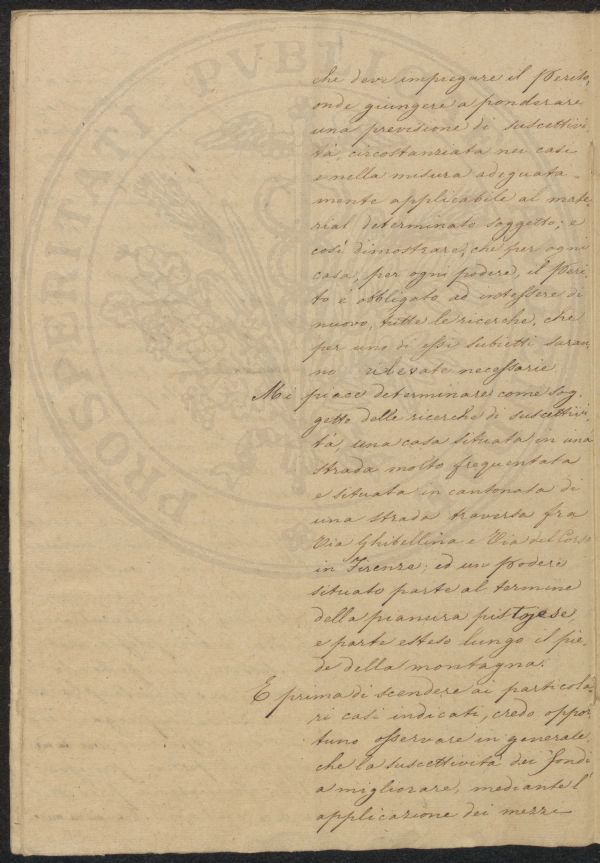 che deve impregare il Perito,
onde giungere a ponderare
una previsione di suscettivi
tà, circostanziata nei casi
e nella misura adeguata-
mente applicabile al mate
rial determinato soggetto; e
così dimostrare, che per ogni
casa, per ogni podere, il Peri
to è obbligato ad intessere di
nuovo, tutte le ricerche, che
per uno di essi subietti saran
no rilevate necessarie
Mi piace determinare come sog
getto delle ricerche di suscettivi
tà una casa situata in una
strada molto frequentata
e situata in cantonata di
una strada traversa fra
Via Ghibellina e Via del Corso
in Firenze; ed un Podere
situato parte al termine
della pianura pistojese
e parte esteso lungo il pie
de della montagna.
E prima di scendere ai particola
ri casi indicati, credo oppor
tuno osservare in generale
che la suscettività dei fondi
a migliorare, mediante l'
applicazione dei mezzi
PROSPERITATI PVBLIC